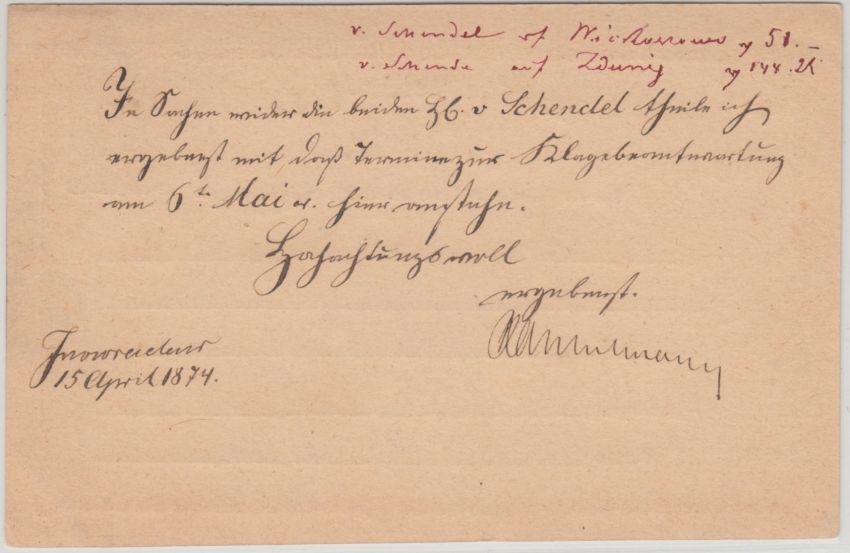 v. Schendel auf 51.–
v. Schende auf Zduny 144.
In Sachen wider die beiden HE. v Schendel theile ich
ergebenst mit, daß Termine zur Klagebeantwortung
am 6t. Mai cr. hier anstehn.
Hochachtungsvoll
ergebenst.
Inowraclaw
15 April 1874.